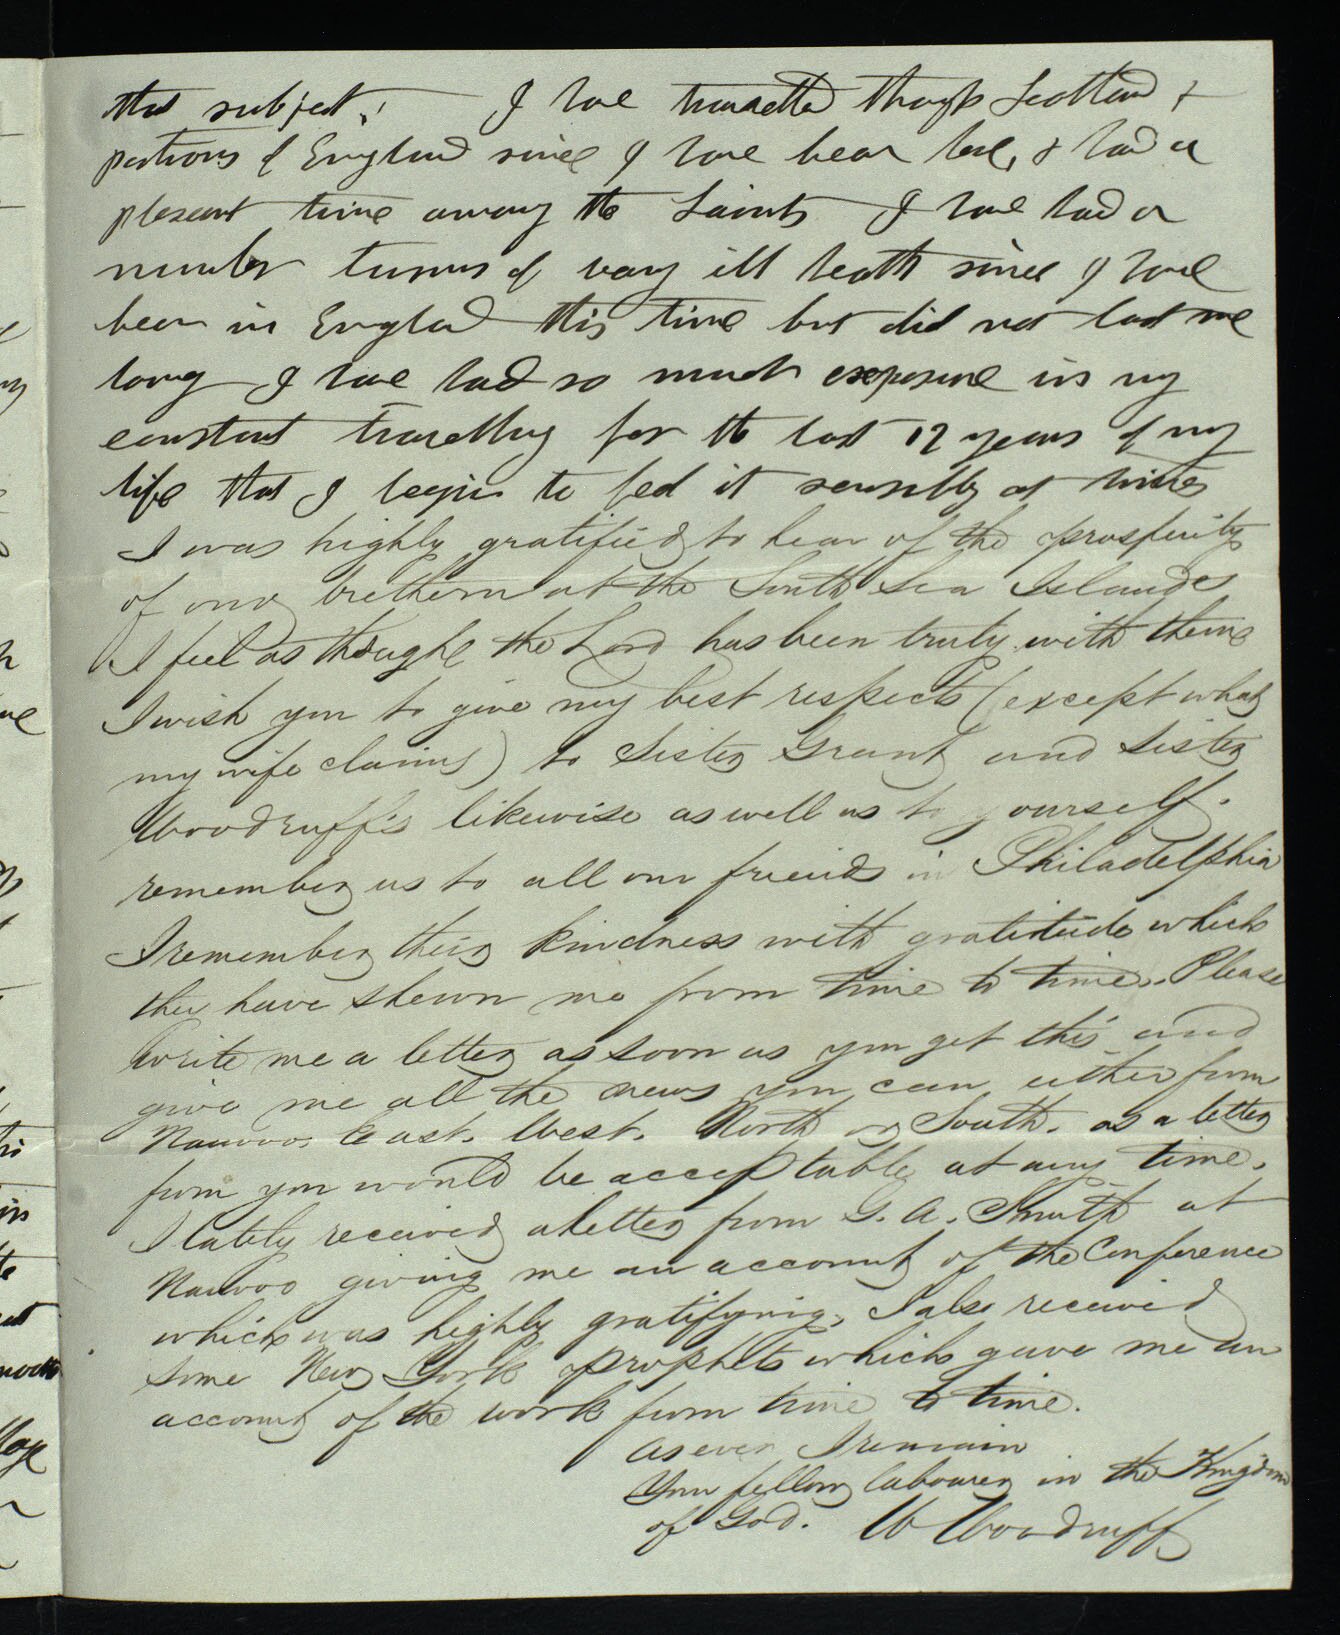 that subject. I have travelled through Scotland &
portions of England since I have been here, & had a
plesent time among the Saints I have had a
number turns of vary ill health since I have
been in England this time but did not last me
long I have had so much exposure in my
constant travelling for the last 12 years of my
life that I begin to feel it sensibly at times
I was highly gratified to hear of the prosperity
of our brethern at the South Sea Islands
I feel as though the Lord has been truly with them
I wish you to give my best respects (except what
my wife claims) to Sister Grant and Sister
Woodruffs likewise as well as to yourself.
remember us to all our friends in Philadelphia
I remember their kindness with gratitude which
they have shewn me from time to time. Please
write me a letter as soon as you get this and
give me all the news you can either from
Nauvoo, East. West. North or South. as a letter
from you would be acceptable at any time.
I lately received a letter from G. A. Smith at
Nauvoo giving me an account of the Conference
which was highly gratifying, I also received
some New York prophets which gave me an
account of the work from time to time.
As ever I remain
Your fellow labourer in the Kingdom
of God. W Woodruff